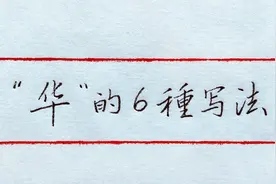 “华”的6種写法